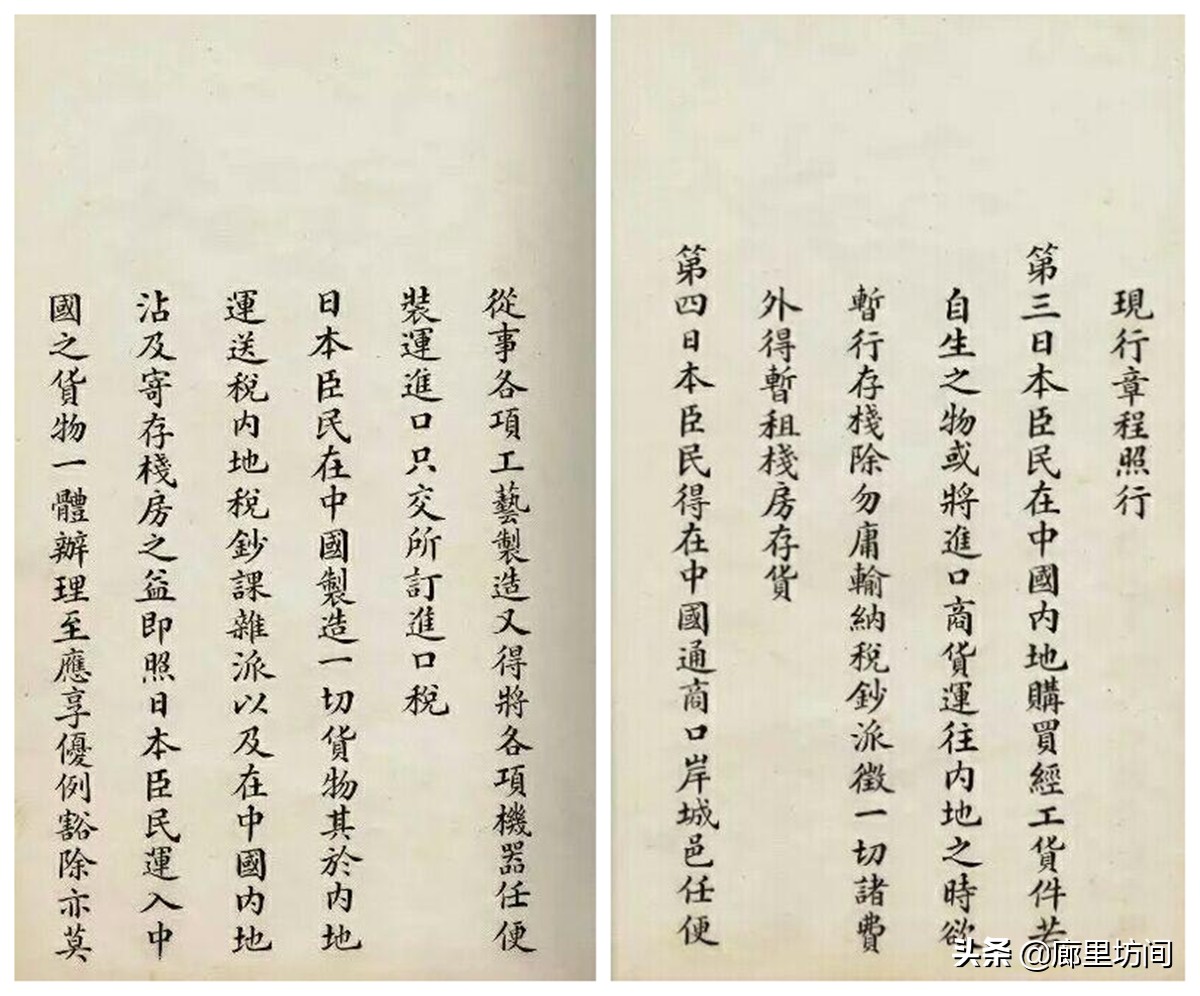 現行章程照行
第三日本臣民在中國内地購買經工貨件若
自生之物或將進口商貨運往内地之時欲
暫行存棧除勿庸輸納稅鈔派徵一切諸費
外得暫租棧房存貨
第四日本臣民得在中國通商口岸城邑任便
從事各項工藝製造又得將各項機器任便
裝運進口只交所訂進口稅
日本臣民在中國製造一切貨物其於内地
運送稅内地稅鈔課雜派以及在中國内地
沾及寄存棧房之益即照日本臣民運入中
國之貨物一體辦理至應享優例豁除亦莫
头条 @廊里坊间